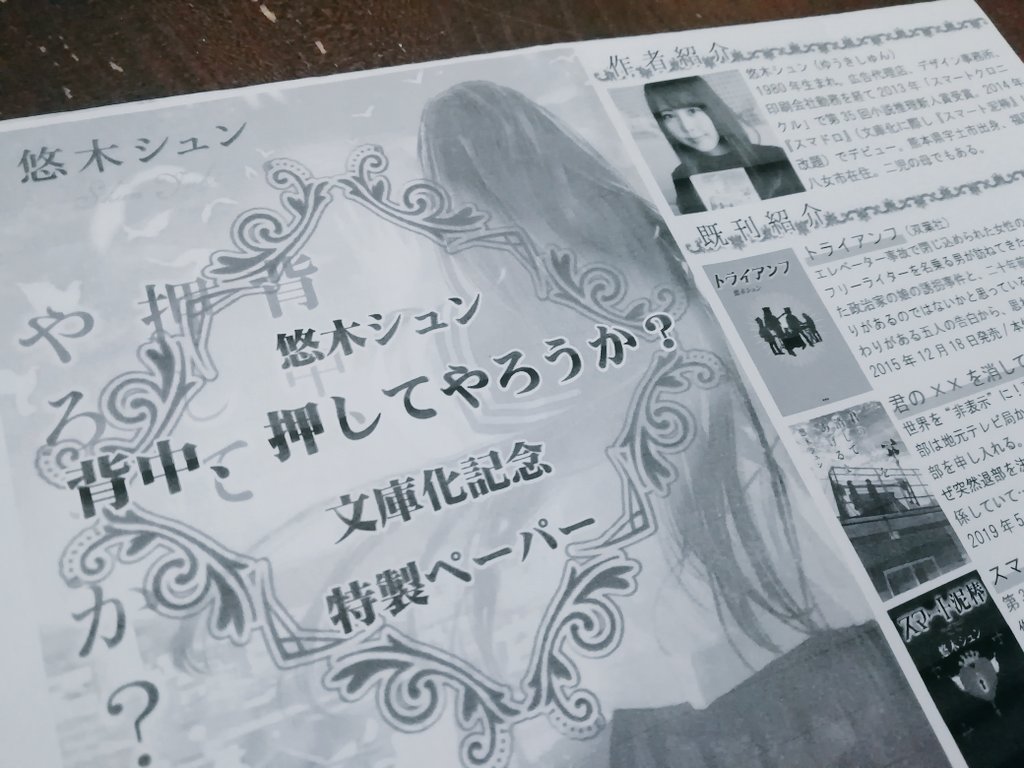 悠木シュン
背中、押して
やろうか？
悠木シュン
背中、押してやろうか？
文庫化記念
特製ペーパー
作者紹介
悠木シュン（ゆうきしゅん）
1980年生まれ。広告代理店、デザイン事務所、
印刷会社勤務を経て2013年「スマートクロニ
クル」で第35回小説推理新人賞受賞。2014年
『スマドロ』（文庫化に際し『スマート泥棒』に
改題）でデビュー。熊本県宇土市出身、福岡
八女市在住。二児の母でもある。
既刊紹介
トライアンフ
悠木シュン
トライアンフ（双葉社）
エレベーター事故で閉じ込められた女性の
フリーライターを名乗る男が訪ねてきた
た政治家の娘の誘拐事件と、二十年前
りがあるのではないかと思っている
わりがある五人の告白から、思い
2015年12月18日発売／本体
君の××を消して
世界を“非表示”に！
部は地元テレビ局か
部を申し入れる。
ぜ突然退部を決
係していて
2019年5
スマート泥棒
悠木シュン
スマ
第3